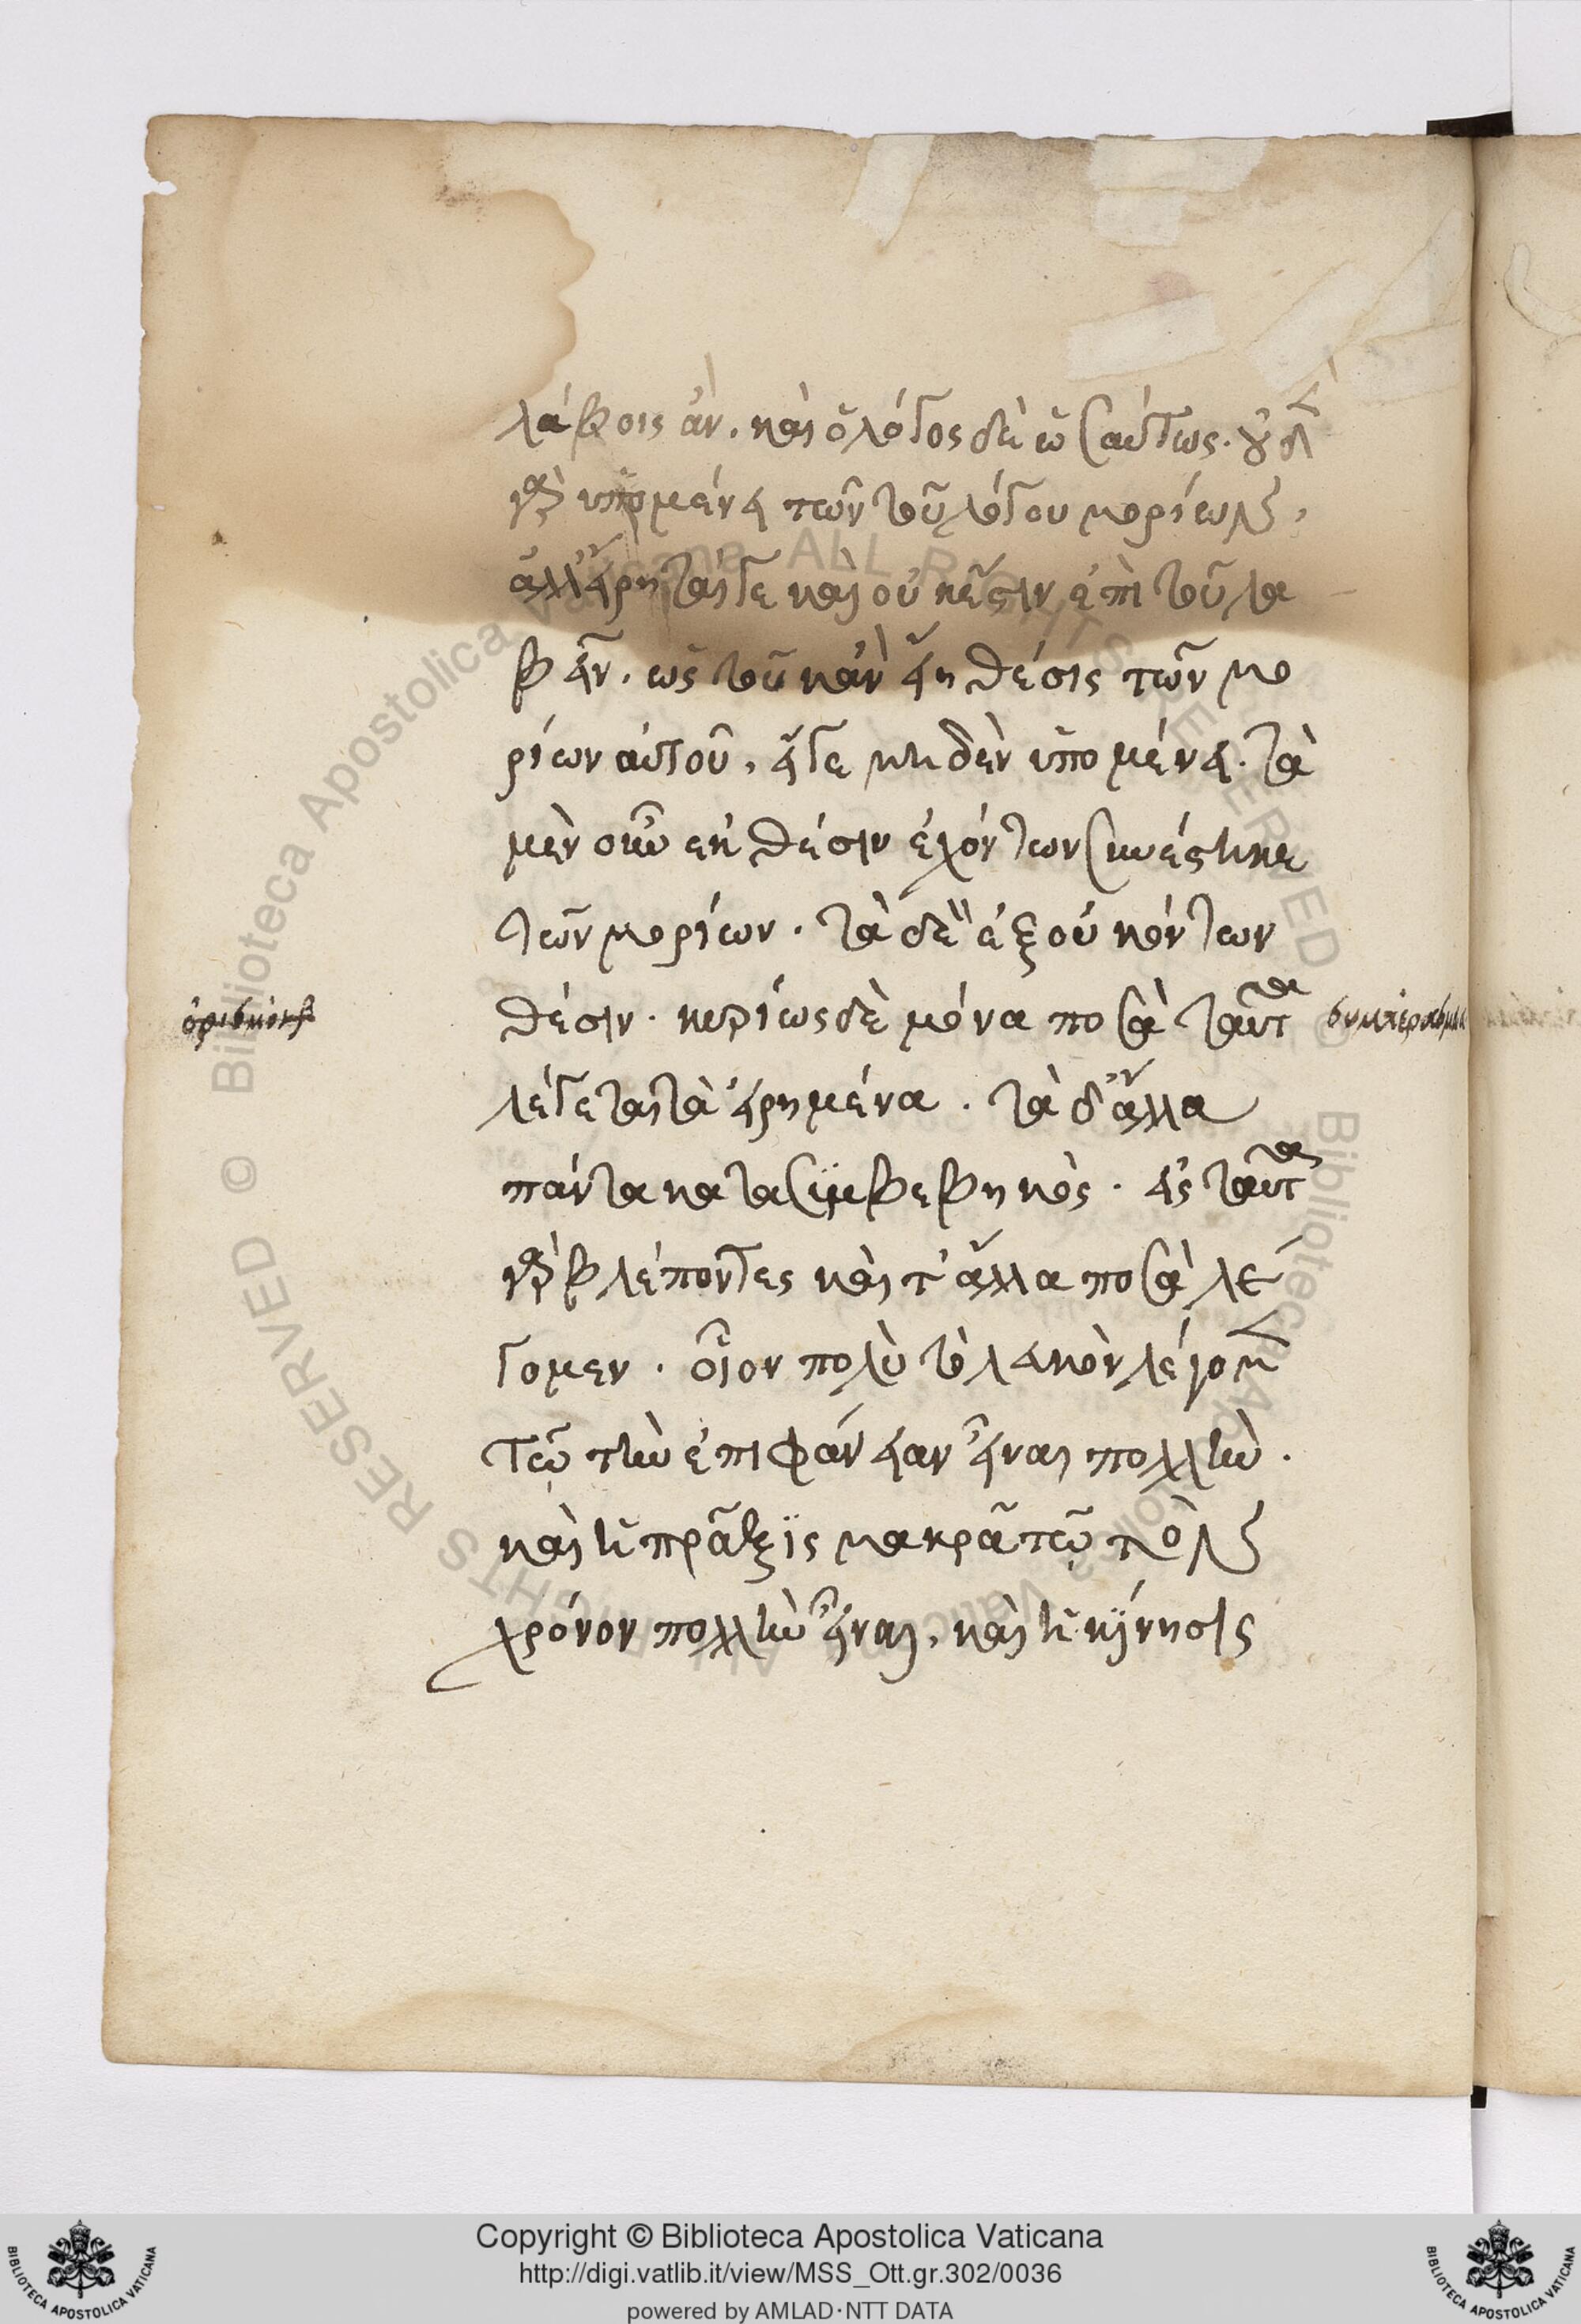 λάβοις ἄν. καὶ ὁ λόγος δὲ ὡσαύτως. οὐδὲν
γὰρ ὑπομένει τῶν τοῦ λόγου μορίων,
ἀλλ' εἴρηταί τε καὶ οὐκ ἔστιν ἔτι τοῦτο λα
βεῖν. ὥστε οὐκ ἂν εἴη θέσις τῶν μο
ρίων αὐτοῦ, εἴγε μηδὲν ὑπομένει. τὰ
μὲν οὖν ἐκ θέσιν ἐχόντων συνέστηκε
τῶν μορίων. τὰ δὲ ἐξ οὐκ ἐχόντων
θέσιν. κυρίως δὲ μόνα ποσὰ ταῦτα
λέγεται τὰ εἰρημένα. τὰ δ' ἄλλα
πάντα κατὰ συμβεβηκός. εἰς ταῦτα
γὰρ βλέποντες καὶ τ' ἄλλα ποσὰ λέ
γομεν. οἷον πολὺ τὸ λευκὸν λέγομεν
τῷ τὴν ἐπιφάνειαν εἶναι πολλὴν.
καὶ ἡ πρᾶξις μακρὰ τῷ τὸν
χρόνον πολλὴν εἶναι, καὶ ἡ κίνησις
συμπέρασμα
Copyright © Biblioteca Apostolica Vaticana
http://digi.vatlib.it/view/MSS_Ott.gr.302/0036
powered by AMLAD·NTT DATA